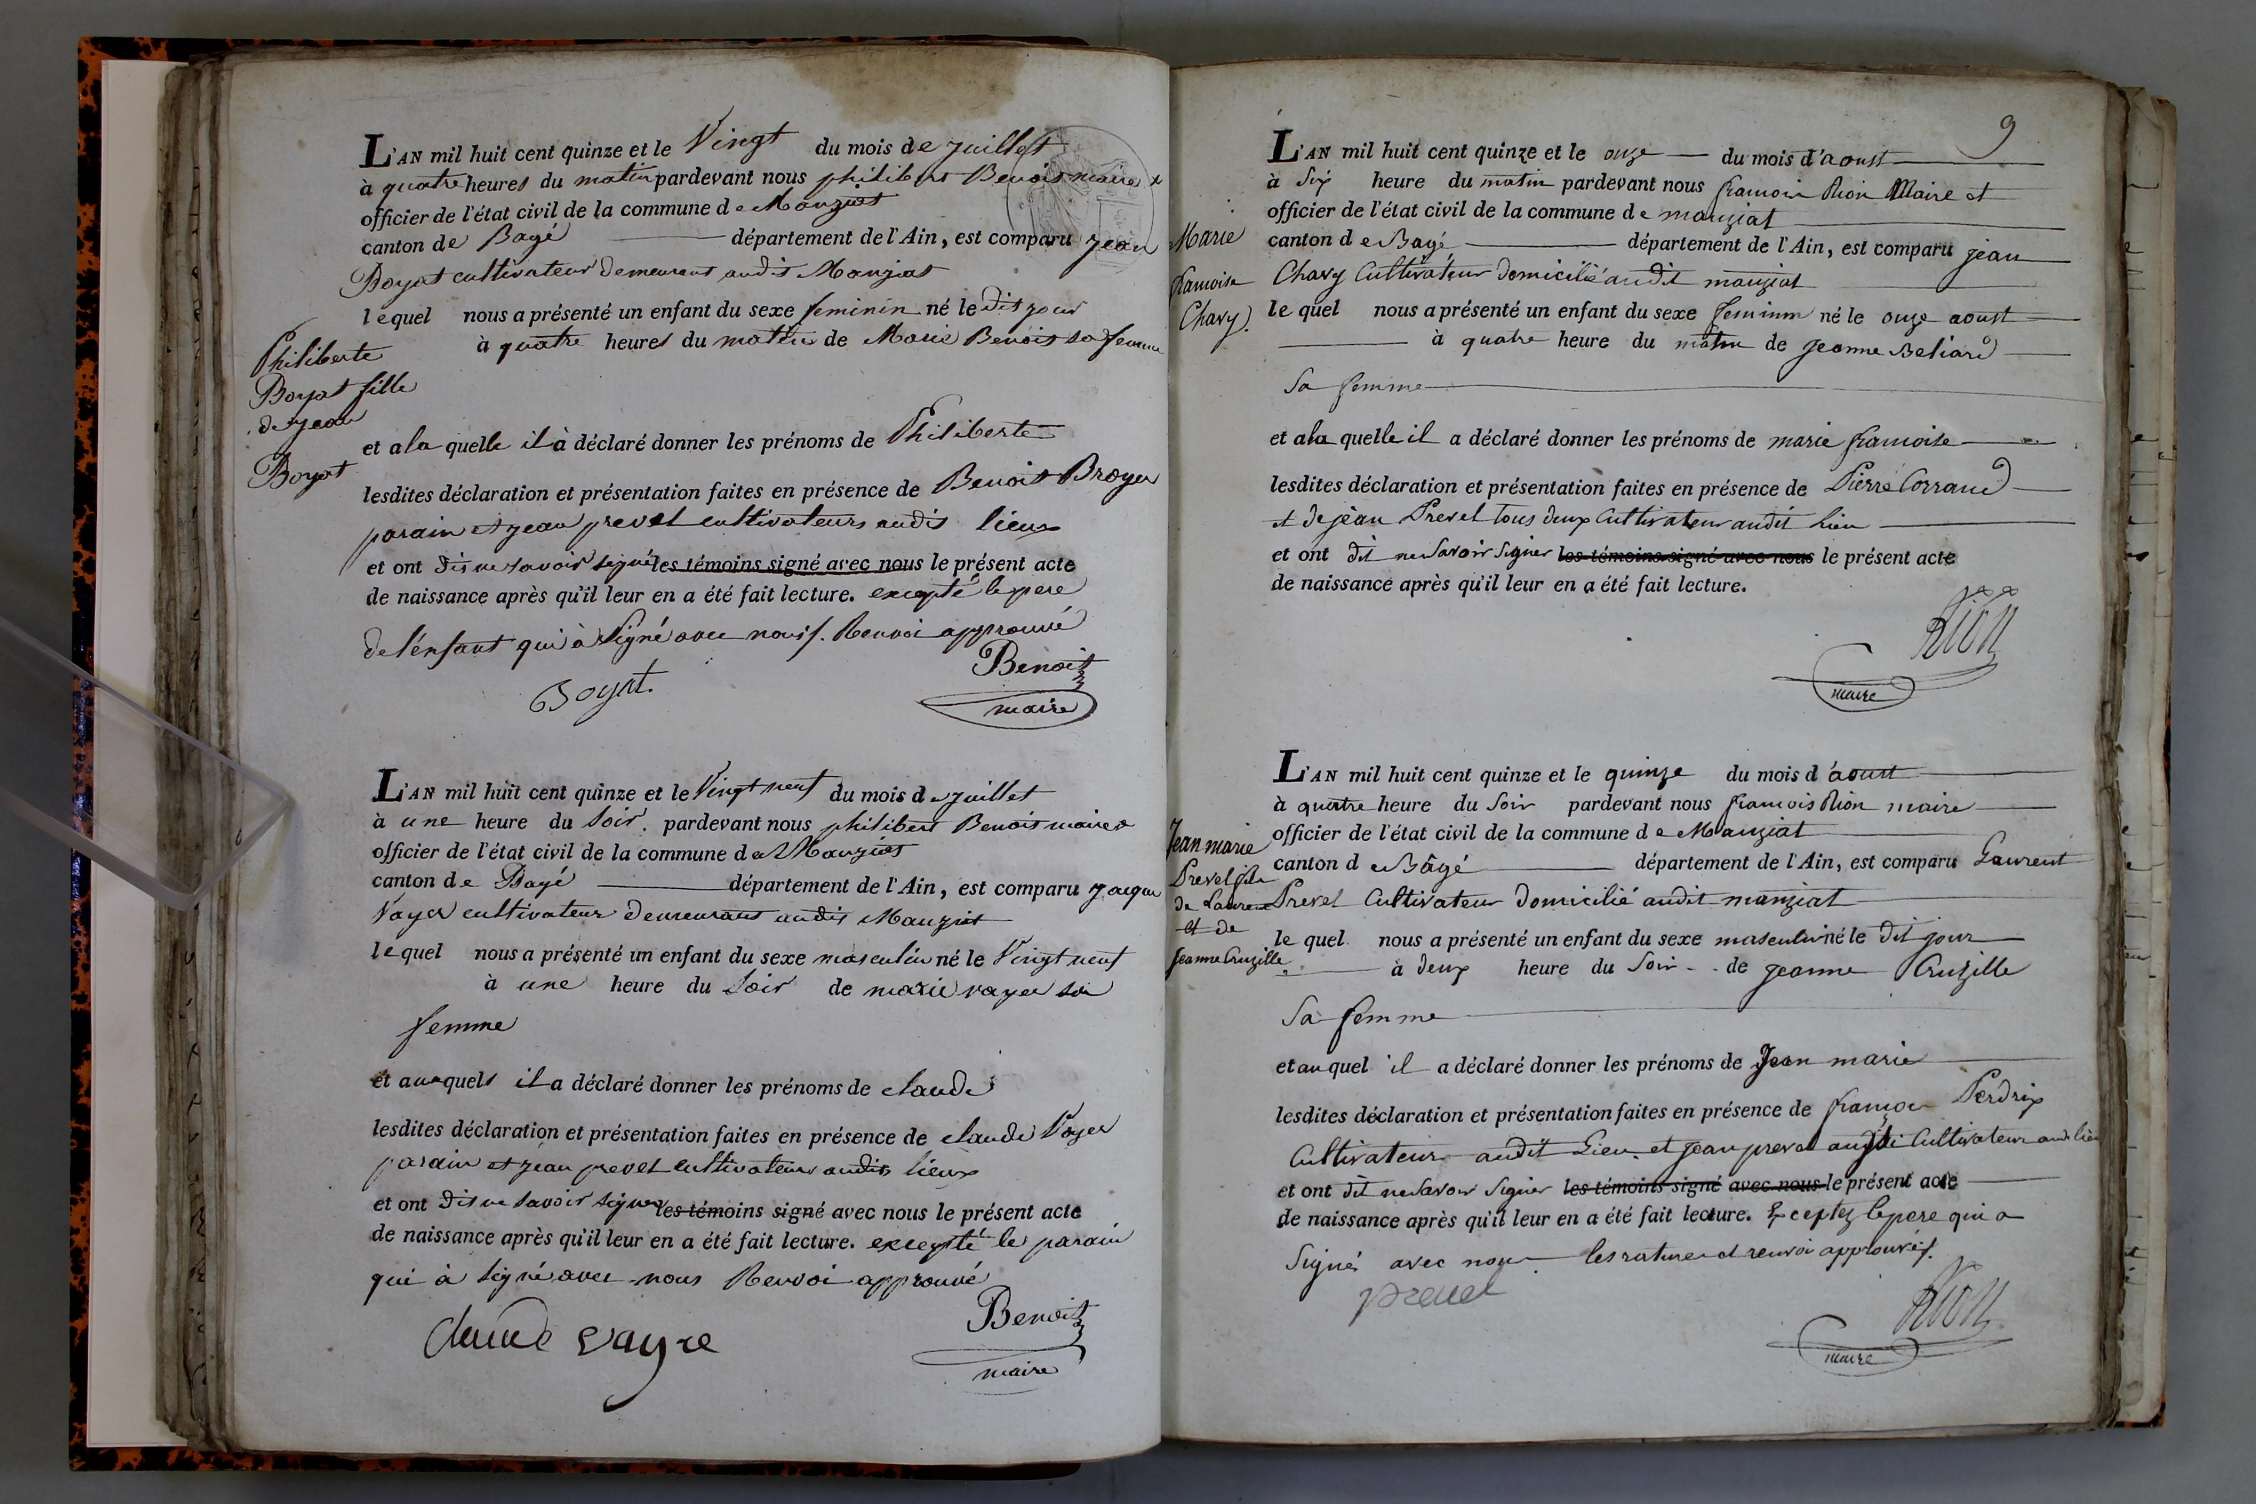 L'AN mil huit cent quinze et le Vingt du mois de juillet
à quatre heures du matin pardevant nous philibert Benoit maire &
officier de l'état civil de la commune de Manziat
canton de Bagé département de l'Ain, est comparu jean
Boyat cultivateur demeurant audit Manziat
lequel nous a présenté un enfant du sexe feminin né le dit jour
à quatre heures du matin de Marie Benoit sa femme
Philiberte
Boyat fille
de jean
Boyat
et a la quelle il à déclaré donner les prénoms de Philiberte
lesdites déclaration et présentation faites en présence de Benoit Broyer
parain et jean prevel cultivateurs audit lieux
et ont dit ne savoir signé les témoins signé avec nous le présent acte
de naissance après qu'il leur en a été fait lecture. excepté le pere
de l'enfant qui à signé avec nous. Renvoi approuvé
Boyat.
Benoit
maire
L'AN mil huit cent quinze et le Vingt neuf du mois de juillet
à une heure du soir. pardevant nous philibert Benoit maire &
officier de l'état civil de la commune de Manziat
canton de Bagé département de l'Ain, est comparu jaque
Voyer cultivateur demeurant audit Manziat
lequel nous a présenté un enfant du sexe masculin né le Vingt neuf
à une heure du soir de marie voyer sa
femme
et au quels il a déclaré donner les prénoms de claude
lesdites déclaration et présentation faites en présence de claude Voyer
parain et jean prevel cultivateurs audit lieux
et ont dit ne savoir signer les témoins signé avec nous le présent acte
de naissance après qu'il leur en a été fait lecture. excepté le parain
qui à signé avec nous Renvoi approuvé
claude vayre
Benoit
maire
9
L'AN mil huit cent quinze et le onze du mois d'aoust
à six heure du matin pardevant nous francois Rion Maire et
officier de l'état civil de la commune de manziat
canton de Bagé département de l'Ain, est comparu jean
Chavy Cultivateur domicilié audit manziat
Marie
francoise
Chavy.
le quel nous a présenté un enfant du sexe feminin né le onze aoust
à quatre heure du matin de jeanne Beliard
sa femme
et a la quelle il a déclaré donner les prénoms de marie francoise
lesdites déclaration et présentation faites en présence de Pierre Corrand
et de jean Prevel tous deux Cultivateur audit lieu
et ont dit ne savoir signer les témoins signé avec nous le présent acte
de naissance après qu'il leur en a été fait lecture.
Rion
maire
L'AN mil huit cent quinze et le quinze du mois d'aoust
à quatre heure du soir pardevant nous francois Rion maire
officier de l'état civil de la commune de Manziat
canton de Bâgé département de l'Ain, est comparu Laurent
Prevel Cultivateur domicilié audit manziat
Jean marie
Prevel fils
de Laurent
et de
jeanne Cruzille
le quel nous a présenté un enfant du sexe masculin né le dit jour
à deux heure du soir de jeanne Cruzille
sa femme
et au quel il a déclaré donner les prénoms de Jean marie
lesdites déclaration et présentation faites en présence de françois Perdrix
Cultivateur audit Lieu et jean prevel aussi Cultivateur aud. lieu
et ont dit ne savoir signer les témoins signé avec nous le présent acte
de naissance après qu'il leur en a été fait lecture. Exceptez le pere qui a
signé avec nous les rature et renvoi approuvés.
prevel
Rion
maire